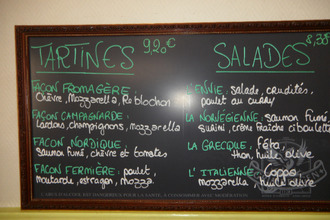 TARTINES 9,20€
FAÇON FROMAGÈRE :
Chèvre, Mozzarella, Reblochon
FAÇON CAMPAGNARDE :
Lardons, champignons, mozzarella
FAÇON NORDIQUE :
saumon fumé, chèvre et tomates
FAÇON FERMIÈRE : poulet,
moutarde, estragon, mozza.
SALADES 8,35
L'ENNIE, salade, crudités,
poulet au curry
LA NORVEGIENNE : saumon fumé,
surimi, crème fraîche ciboulette
LA GRECQUE : Féta
thon, huile olive
L'ITALIENNE : Coppa
mozzarella, huile olive
L'ABUS D'ALCOOL EST DANGEREUX POUR LA SANTÉ, À CONSOMMER AVEC MODÉRATION